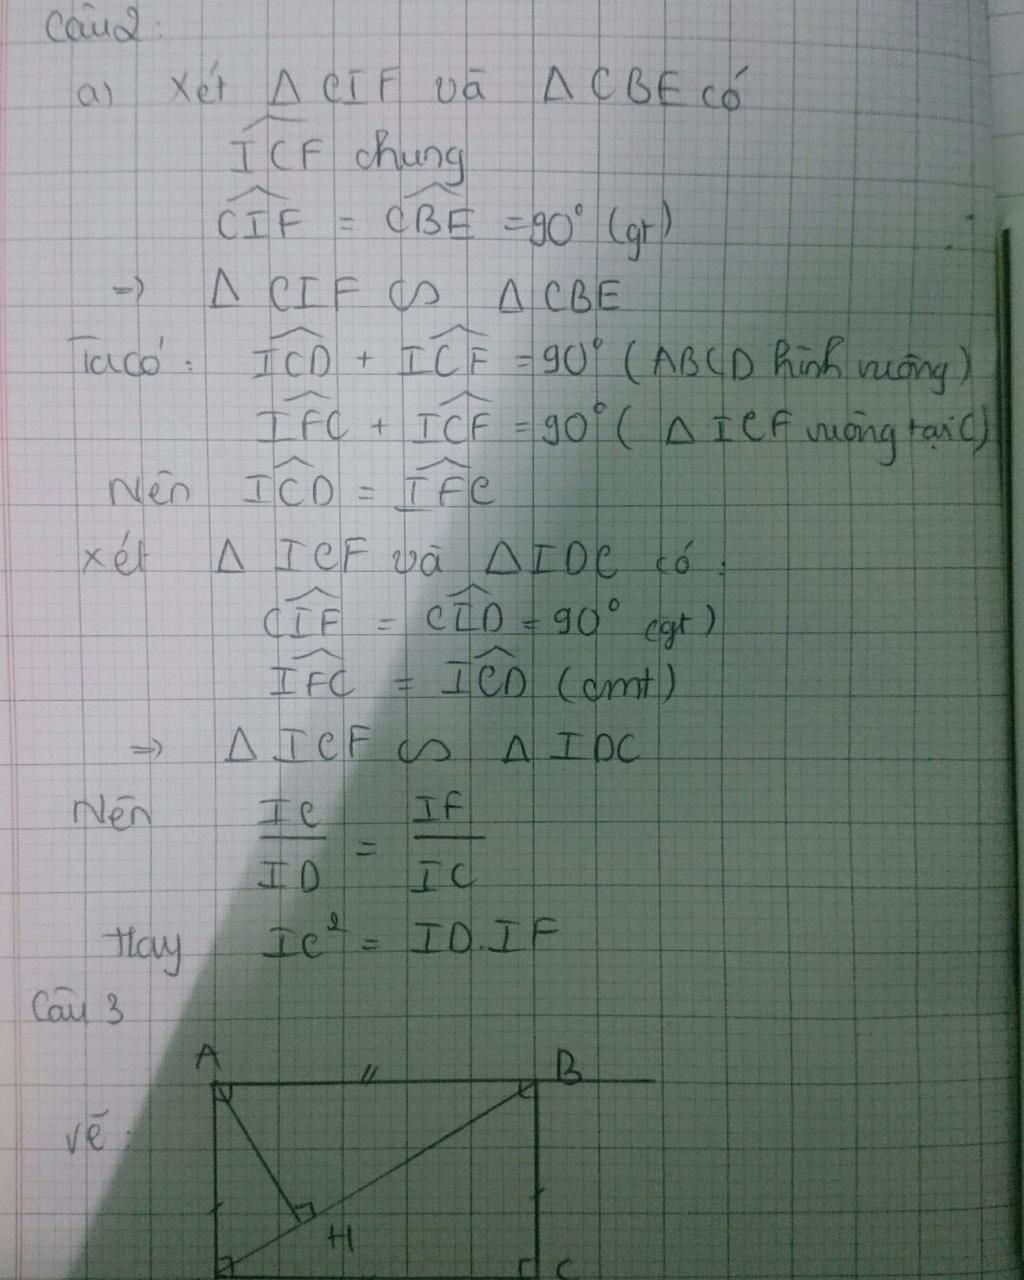 Câu 2:
a) Xét Δ CIF và Δ CBE có
ICF chung
CIF = CBE = 90° (gt)
=> Δ CIF ∽ Δ CBE
Ta có: ICD + ICF = 90° (ABCD hình vuông)
IFC + ICF = 90° (Δ ICF vuông tại C)
Nên ICD = IFC
Xét Δ ICF và Δ IDC có:
CIF = CID = 90° (gt)
IFC = ICD (cmt)
=> Δ ICF ∽ Δ IDC
Nên IC/ID = IF/IC
Hay IC² = ID.IF
Câu 3
A B
Vẽ:
H
C